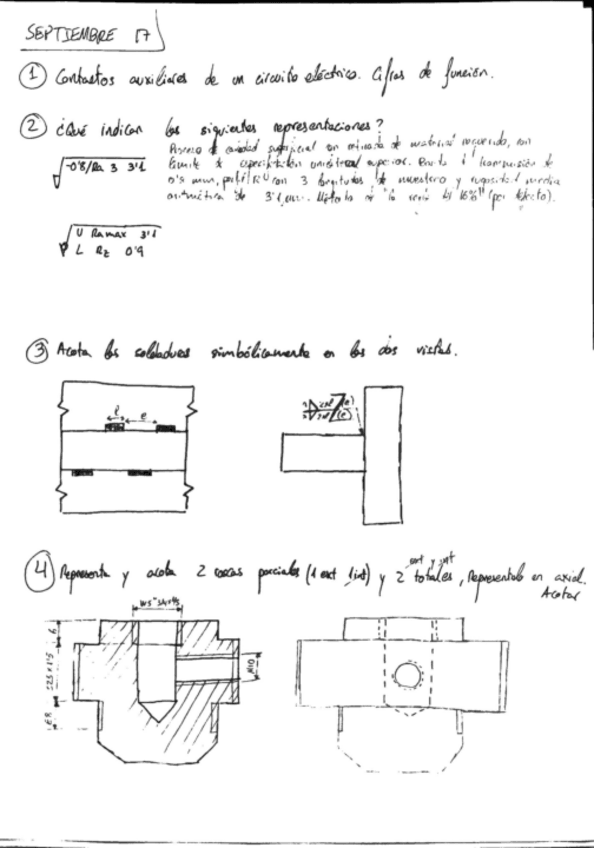 SEPTIEMBRE 17
1 Contactos auxiliares de un circuito eléctrico. Cifras de función.
2 ¿Qué indican las siguientes representaciones?
Proceso de calidad superficial con retirada de material requerido, con
límite de especificación unilateral superior. Banda de transmisión de
0'8 mm, perfil R con 3 longitudes de muestreo y rugosidad media
aritmética de 3'1 µm. "la regla del 16%" (por defecto).
-0'8/Ra 3 3'1
U Ramax 3'1
L Rz 0'9
3 Acota las soldaduras simbólicamente en las dos vistas.
l e
(e)
(e)
4 Representa y acota 2 roscas parciales (1 ext 1 int) y 2 totales, Represéntalo en axial.
ext y int
Acotar
M10